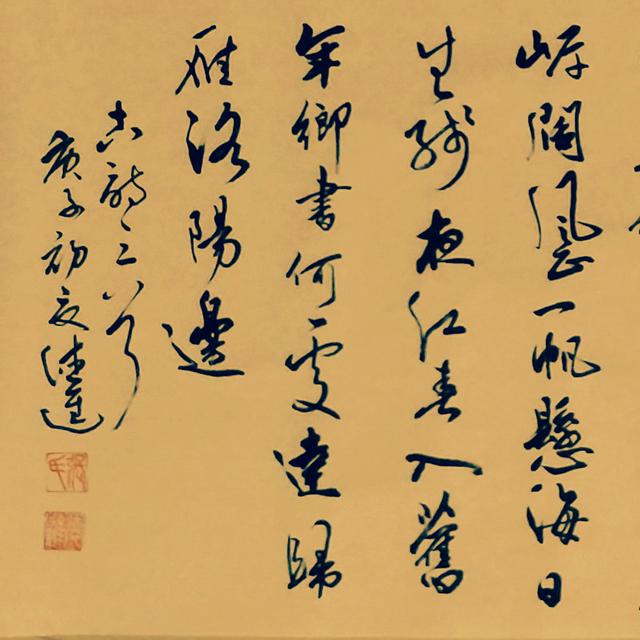 岸闊風正一帆懸海日
生殘夜江春入舊
年鄉書何處達歸
雁洛陽邊
古詩三
庚子初夏